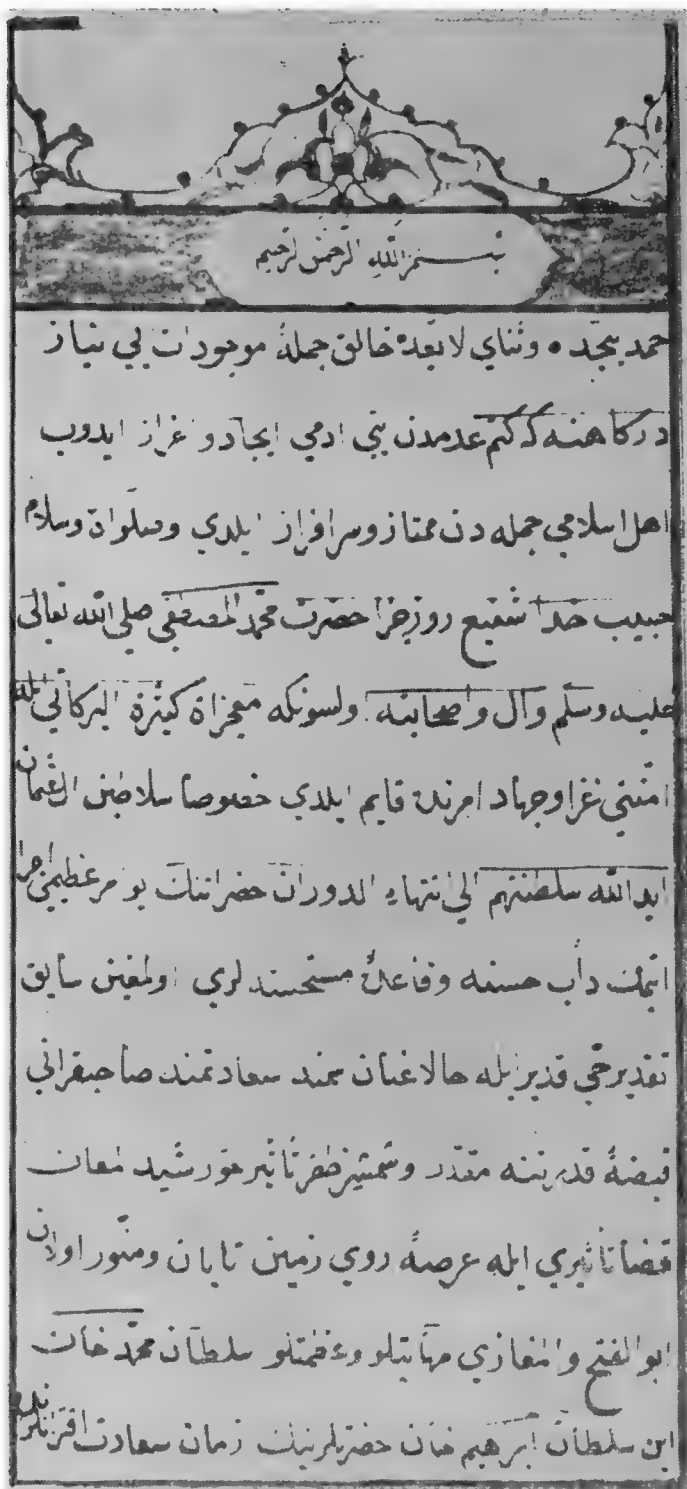 بسم الله الرحمن الرحيم
حمد بيحده وثناي لا بعده خالق جملهٔ موجودات بي نياز
دركاهنه كه كتم عدمدن بني ادمي ايجاد و اعزاز ايدوب
اهل اسلامي جمله دن ممتاز وسرافراز ايلدي وصلواة وسلام
حبيب خدا شفيع روز جزا حضرت محمد المصطفى صلى الله تعالى
عليه وسلم وآل واصحابنه اولسونكه معجزاة كثيرة البركاتي ايله
امتني غزا وجهاد امرنده قايم ايلدي خصوصا سلاطين ال عثمان
ايد الله سلطنتهم الى انتهاء الدوران حضراتنك بو امر عظيمي اجرا
ايتمك دأب حسنه وقاعدهٔ مستحسنه لري اولمغين سابق
تقدير حي قدير ايله حالا عنان سمند سعادتمند صاحبقراني
قبضهٔ قدرتنه مقدر وشمشير ظفر تأثير خورشيد لمعان
قضا تأثيري ايله عرصهٔ روي زمين تابان ومنور اولان
ابو الفتح والمغازي مهابتلو وعظمتلو سلطان محمد خان
ابن سلطان ابرهيم خان حضرتلرينك زمان سعادت اقترانلرنده